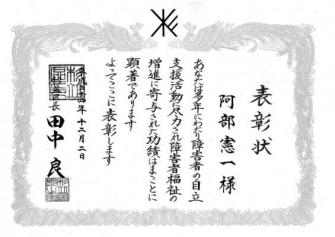 表彰状
阿部憲一様
あなたは多年にわたり障害者の自立
支援活動に尽力され障害者福祉の
増進に寄与された功績はまことに
顕著であります
よってここに表彰します
年十二月二日
長 田中良